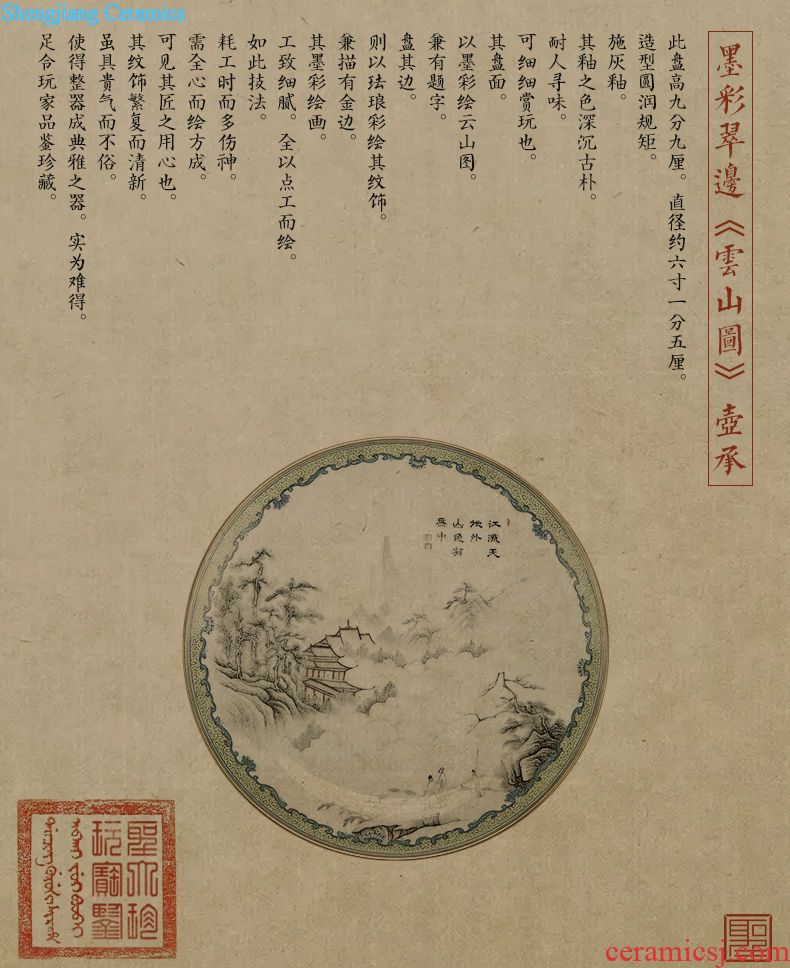 Shengjiang Ceramics
墨彩翠邊《雲山圖》壺承
此盘高九分九厘。直径约六寸一分五厘。
造型圆润规矩。
施灰釉。
其釉之色深沉古朴。
耐人寻味。
可细细赏玩也。
其盘面。
以墨彩绘云山图。
兼有题字。
盘其边。
则以珐琅彩绘其纹饰。
兼描有金边。
其墨彩绘画。
工致细腻。全以点工而绘。
如此技法。
耗工时而多伤神。
需全心而绘方成。
可见其匠之用心也。
其纹饰繁复而清新。
虽具贵气而不俗。
使得整器成典雅之器。实为难得。
足令玩家品鉴珍藏。
江流天
地外
山色有
無中
ceramicsj.com